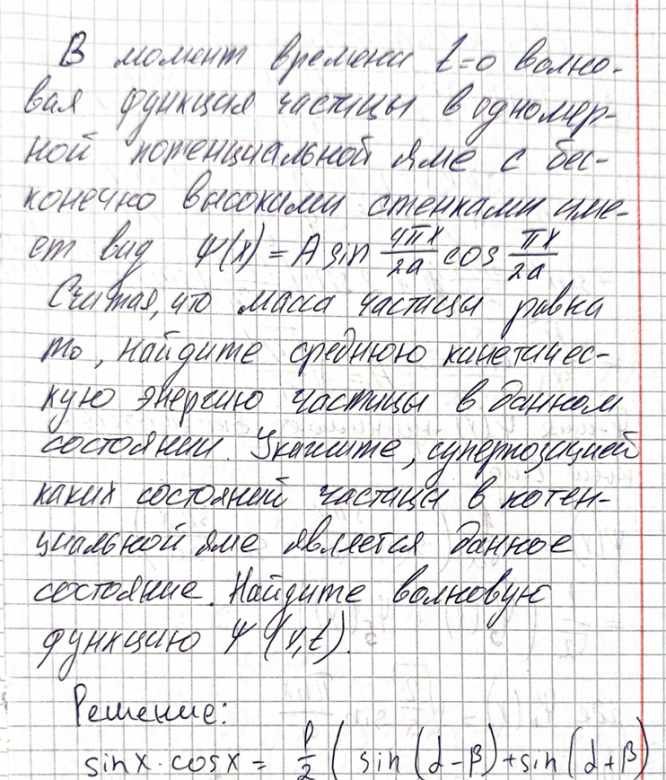 В момент времени t=0 волно-
вая функция частицы в одномер-
ной потенциальной яме с бес-
конечно высокими стенками име-
ет вид Ψ(x) = A sin 4πx/2a cos πx/2a
Считая, что масса частицы равна
m₀, найдите среднюю кинетичес-
кую энергию частицы в данном
состоянии. Укажите, суперпозицией
каких состояний частицы в потен-
циальной яме является данное
состояние. Найдите волновую
функцию Ψ(x,t).
Решение:
sinx · cosx = 1/2 ( sin (α-β)+sin (α+β)